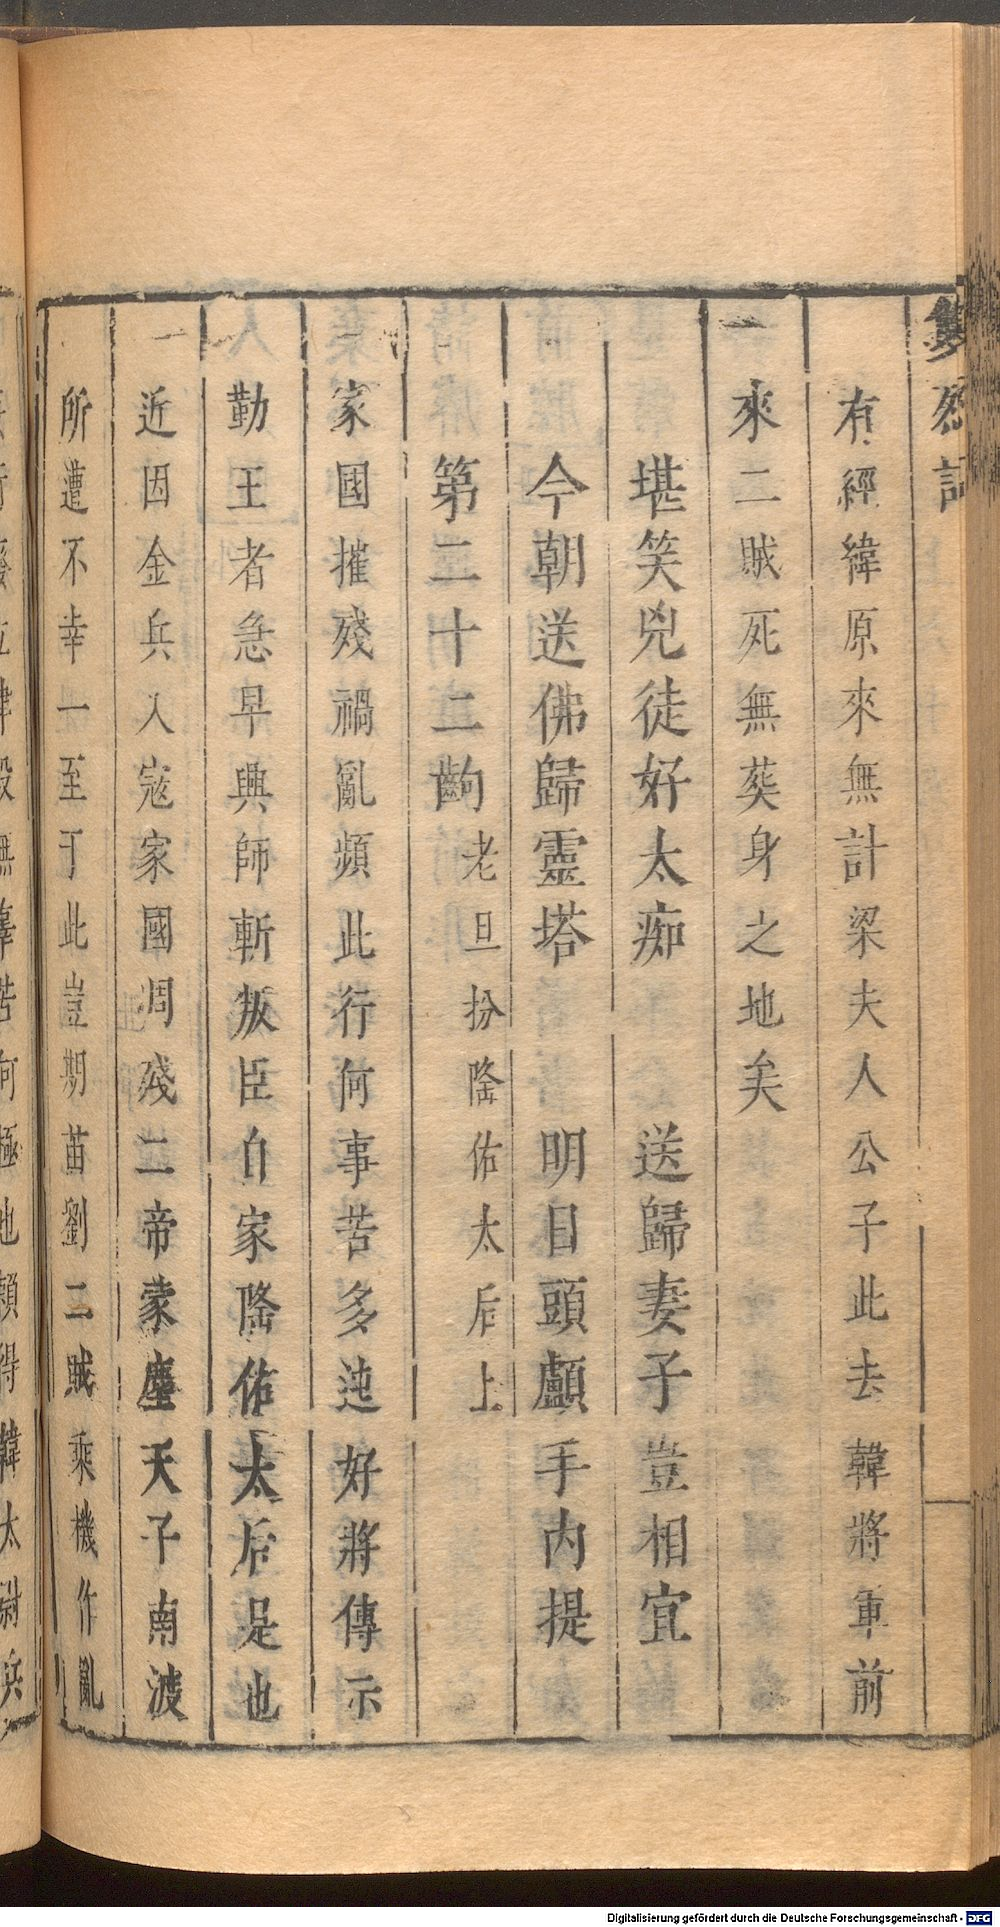 有經緯原來無計梁夫人公子此去韓將軍前
來二賊死無葬身之地矣
堪笑兇徒好太痴　送歸妻子豈相宜
今朝送佛歸靈塔　明目頭顱手內提
第二十二齣　老旦扮隆佑太后上
家國摧殘禍亂頻此行何事苦多迍好將傳示
勤王者急早興師斬叛臣自家隆佑太后是也
近因金兵入寇家國凋殘二帝蒙塵天子南渡
所遭不幸一至于此豈期苗劉二賊乘機作亂
Digitalisierung gefördert durch die Deutsche Forschungsgemeinschaft - DFG